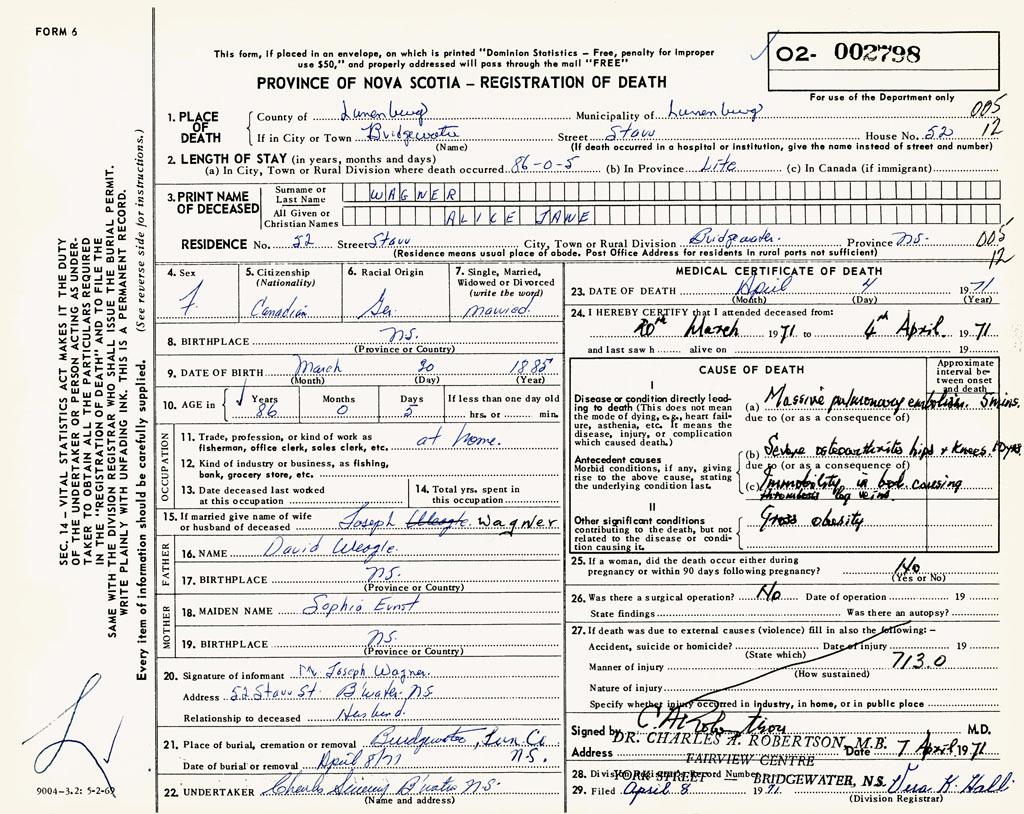 FORM 6
This form, if placed in an envelope, on which is printed "Dominion Statistics — Free, penalty for improper
use $50," and properly addressed will pass through the mail "FREE"
PROVINCE OF NOVA SCOTIA – REGISTRATION OF DEATH
02- 002798
For use of the Department only
005
12
1. PLACE OF DEATH
County of Lunenburg Municipality of Lunenburg
If in City or Town Bridgewater Street Starr House No. 52
(Name) (If death occurred in a hospital or institution, give the name instead of street and number)
2. LENGTH OF STAY (in years, months and days)
(a) In City, Town or Rural Division where death occurred 86-0-5 (b) In Province Life (c) In Canada (if immigrant)
3. PRINT NAME OF DECEASED
Surname or Last Name WAGNER
All Given or Christian Names ALICE JANE
RESIDENCE No. 52 Street Starr City, Town or Rural Division Bridgewater Province N.S.
(Residence means usual place of abode. Post Office Address for residents in rural parts not sufficient)
005
12
4. Sex F.
5. Citizenship (Nationality) Canadian
6. Racial Origin Ger.
7. Single, Married, Widowed or Divorced (write the word) Married.
8. BIRTHPLACE N.S.
(Province or Country)
9. DATE OF BIRTH March 30 1885
(Month) (Day) (Year)
10. AGE in Years 86 Months 0 Days 5 If less than one day old hrs. or min.
OCCUPATION
11. Trade, profession, or kind of work as
fisherman, office clerk, sales clerk, etc. at home.
12. Kind of industry or business, as fishing,
bank, grocery store, etc.
13. Date deceased last worked
at this occupation
14. Total yrs. spent in
this occupation
15. If married give name of wife
or husband of deceased Joseph Weagle Wagner
FATHER
16. NAME David Weagle.
17. BIRTHPLACE N.S.
(Province or Country)
MOTHER
18. MAIDEN NAME Sophia Ernst
19. BIRTHPLACE N.S.
(Province or Country)
20. Signature of informant Mr. Joseph Wagner
Address 52 Starr St. B'water N.S.
Relationship to deceased Husband.
21. Place of burial, cremation or removal Bridgewater, Lun. Co. N.S.
Date of burial or removal April 8/71
22. UNDERTAKER Charles B'water N.S.
(Name and address)
MEDICAL CERTIFICATE OF DEATH
23. DATE OF DEATH April 4 1971
(Month) (Day) (Year)
24. I HEREBY CERTIFY that I attended deceased from:
20th March 1971 to 4th April 1971
and last saw h alive on 19
CAUSE OF DEATH
Approximate interval between onset and death
I
Disease or condition directly leading to death (This does not mean the mode of dying, e.g., heart failure, asthenia, etc. It means the disease, injury, or complication which caused death.)
(a) Massive pulmonary embolism. 5 mins.
due to (or as a consequence of)
Antecedent causes
Morbid conditions, if any, giving rise to the above cause, stating the underlying condition last.
(b) Severe osteoarthritis hips + knees. 10 yrs.
due to (or as a consequence of)
(c) Immobility in bed causing
thrombosis leg veins
II
Other significant conditions
contributing to the death, but not related to the disease or condition causing it.
Gross obesity
25. If a woman, did the death occur either during
pregnancy or within 90 days following pregnancy? No
(Yes or No)
26. Was there a surgical operation? No Date of operation 19
State findings Was there an autopsy?
27. If death was due to external causes (violence) fill in also the following: –
Accident, suicide or homicide? Date of injury 19
(State which)
Manner of injury 713.0
(How sustained)
Nature of injury
Specify whether injury occurred in industry, in home, or in public place
Signed by C A Robertson M.D.
DR. CHARLES A. ROBERTSON, M.B.
Address FAIRVIEW CENTRE Date 7 April 1971
YORK STREET BRIDGEWATER, N.S.
28. Division Registrar's Record Number
29. Filed April 8 1971 Vera K. Hall
(Division Registrar)
SEC. 14 – VITAL STATISTICS ACT MAKES IT THE DUTY
OF THE UNDERTAKER OR PERSON ACTING AS UNDER-
TAKER TO OBTAIN ALL THE PARTICULARS REQUIRED
IN THE "REGISTRATION OF DEATH" AND TO FILE THE
SAME WITH THE DIVISION REGISTRAR WHO SHALL ISSUE THE BURIAL PERMIT.
WRITE PLAINLY WITH UNFADING INK. THIS IS A PERMANENT RECORD.
Every item of information should be carefully supplied. (See reverse side for instructions.)
9004-3.2: 5-2-69